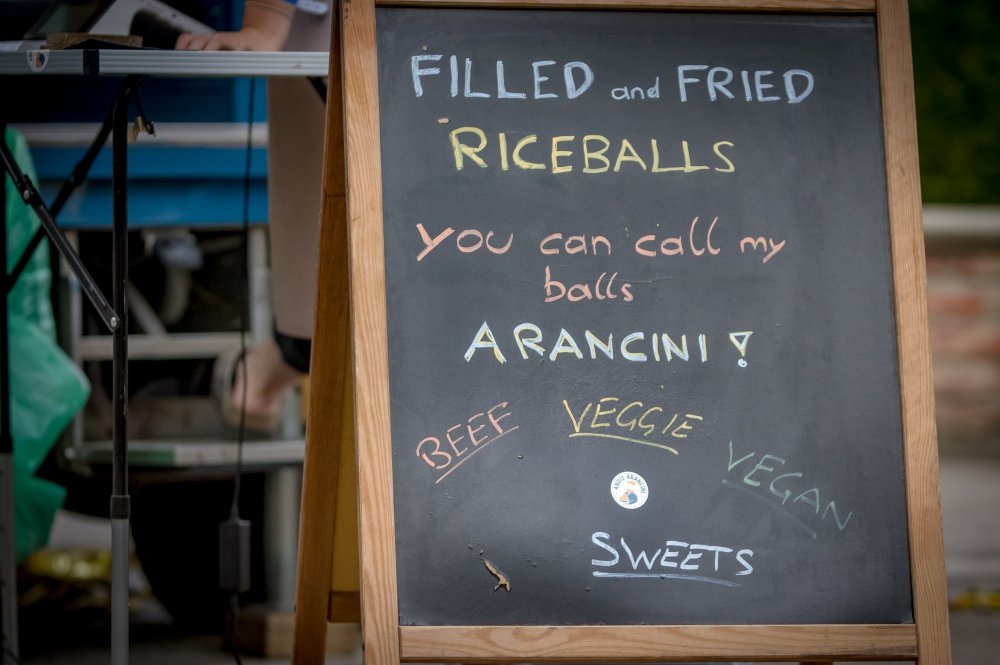 FILLED and FRIED
RICEBALLS
you can call my
balls
ARANCINI!
BEEF
VEGGIE
VEGAN
ANDIS ARANCINI
SWEETS